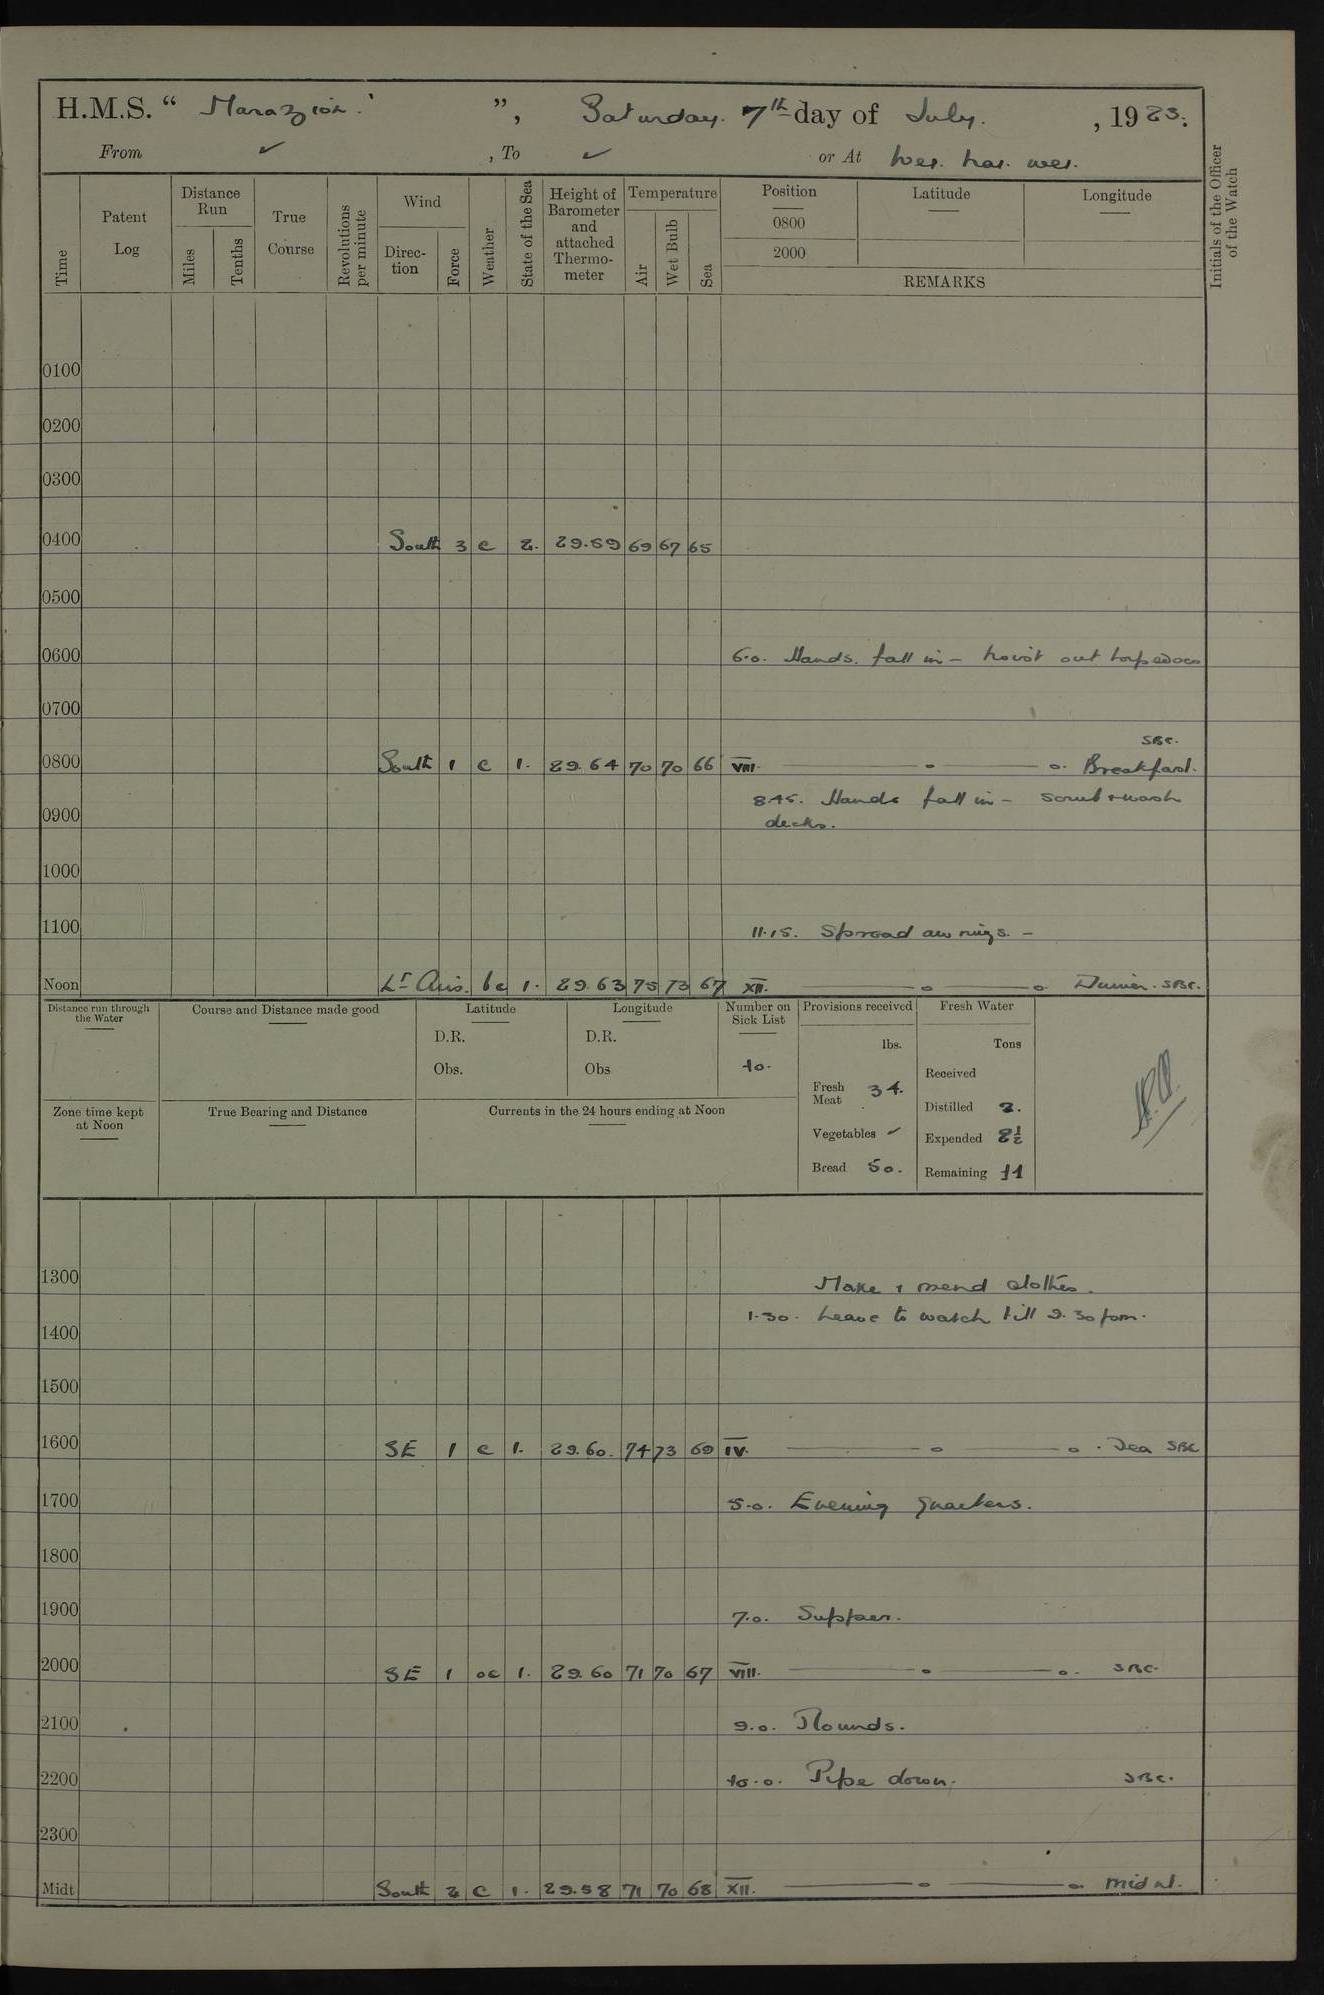 H.M.S. “ Marazion ”, Saturday. 7th day of July. , 1923.
From ✓ , To ✓ or At Wei. hai. wei.
Time
Patent Log
Distance Run
Miles
Tenths
True Course
Revolutions per minute
Wind
Direction
Force
Weather
State of the Sea
Height of Barometer and attached Thermometer
Temperature
Air
Wet Bulb
Sea
Position
0800
2000
Latitude
Longitude
REMARKS
Initials of the Officer of the Watch
0100
0200
0300
0400 South 3 c 2. 29.59 69 67 65
0500
0600 6.0. Hands. fall in – hoist out torpedoes
0700
SBC.
0800 South 1 c 1. 29.64 70 70 66 VIII. Breakfast.
8.45. Hands fall in – scrub & wash
0900 decks.
1000
1100 11.15. Spread awnings. –
Noon Lt Airs. bc 1. 29.63 75 73 67 XII. Dinner. SBC.
Distance run through the Water
Course and Distance made good
Latitude
D.R.
Obs.
Longitude
D.R.
Obs
Number on Sick List
10.
Provisions received
lbs.
Fresh Meat 34.
Vegetables ✓
Bread 50.
Fresh Water
Tons
Received
Distilled 2.
Expended 2½
Remaining 11
Zone time kept at Noon
True Bearing and Distance
Currents in the 24 hours ending at Noon
1300 Make & mend clothes.
1.30. Leave to watch till 9.30 pm.
1400
1500
1600 SE 1 c 1. 29.60. 74 73 69 IV. Tea SBC
1700 5.0. Evening Quarters.
1800
1900 7.0. Supper.
2000 SE 1 oc 1. 29.60 71 70 67 VIII. SBC.
2100 9.0. Rounds.
2200 10.0. Pipe down. SBC.
2300
Midt South 2 c 1. 29.58 71 70 68 XII. mid nt.